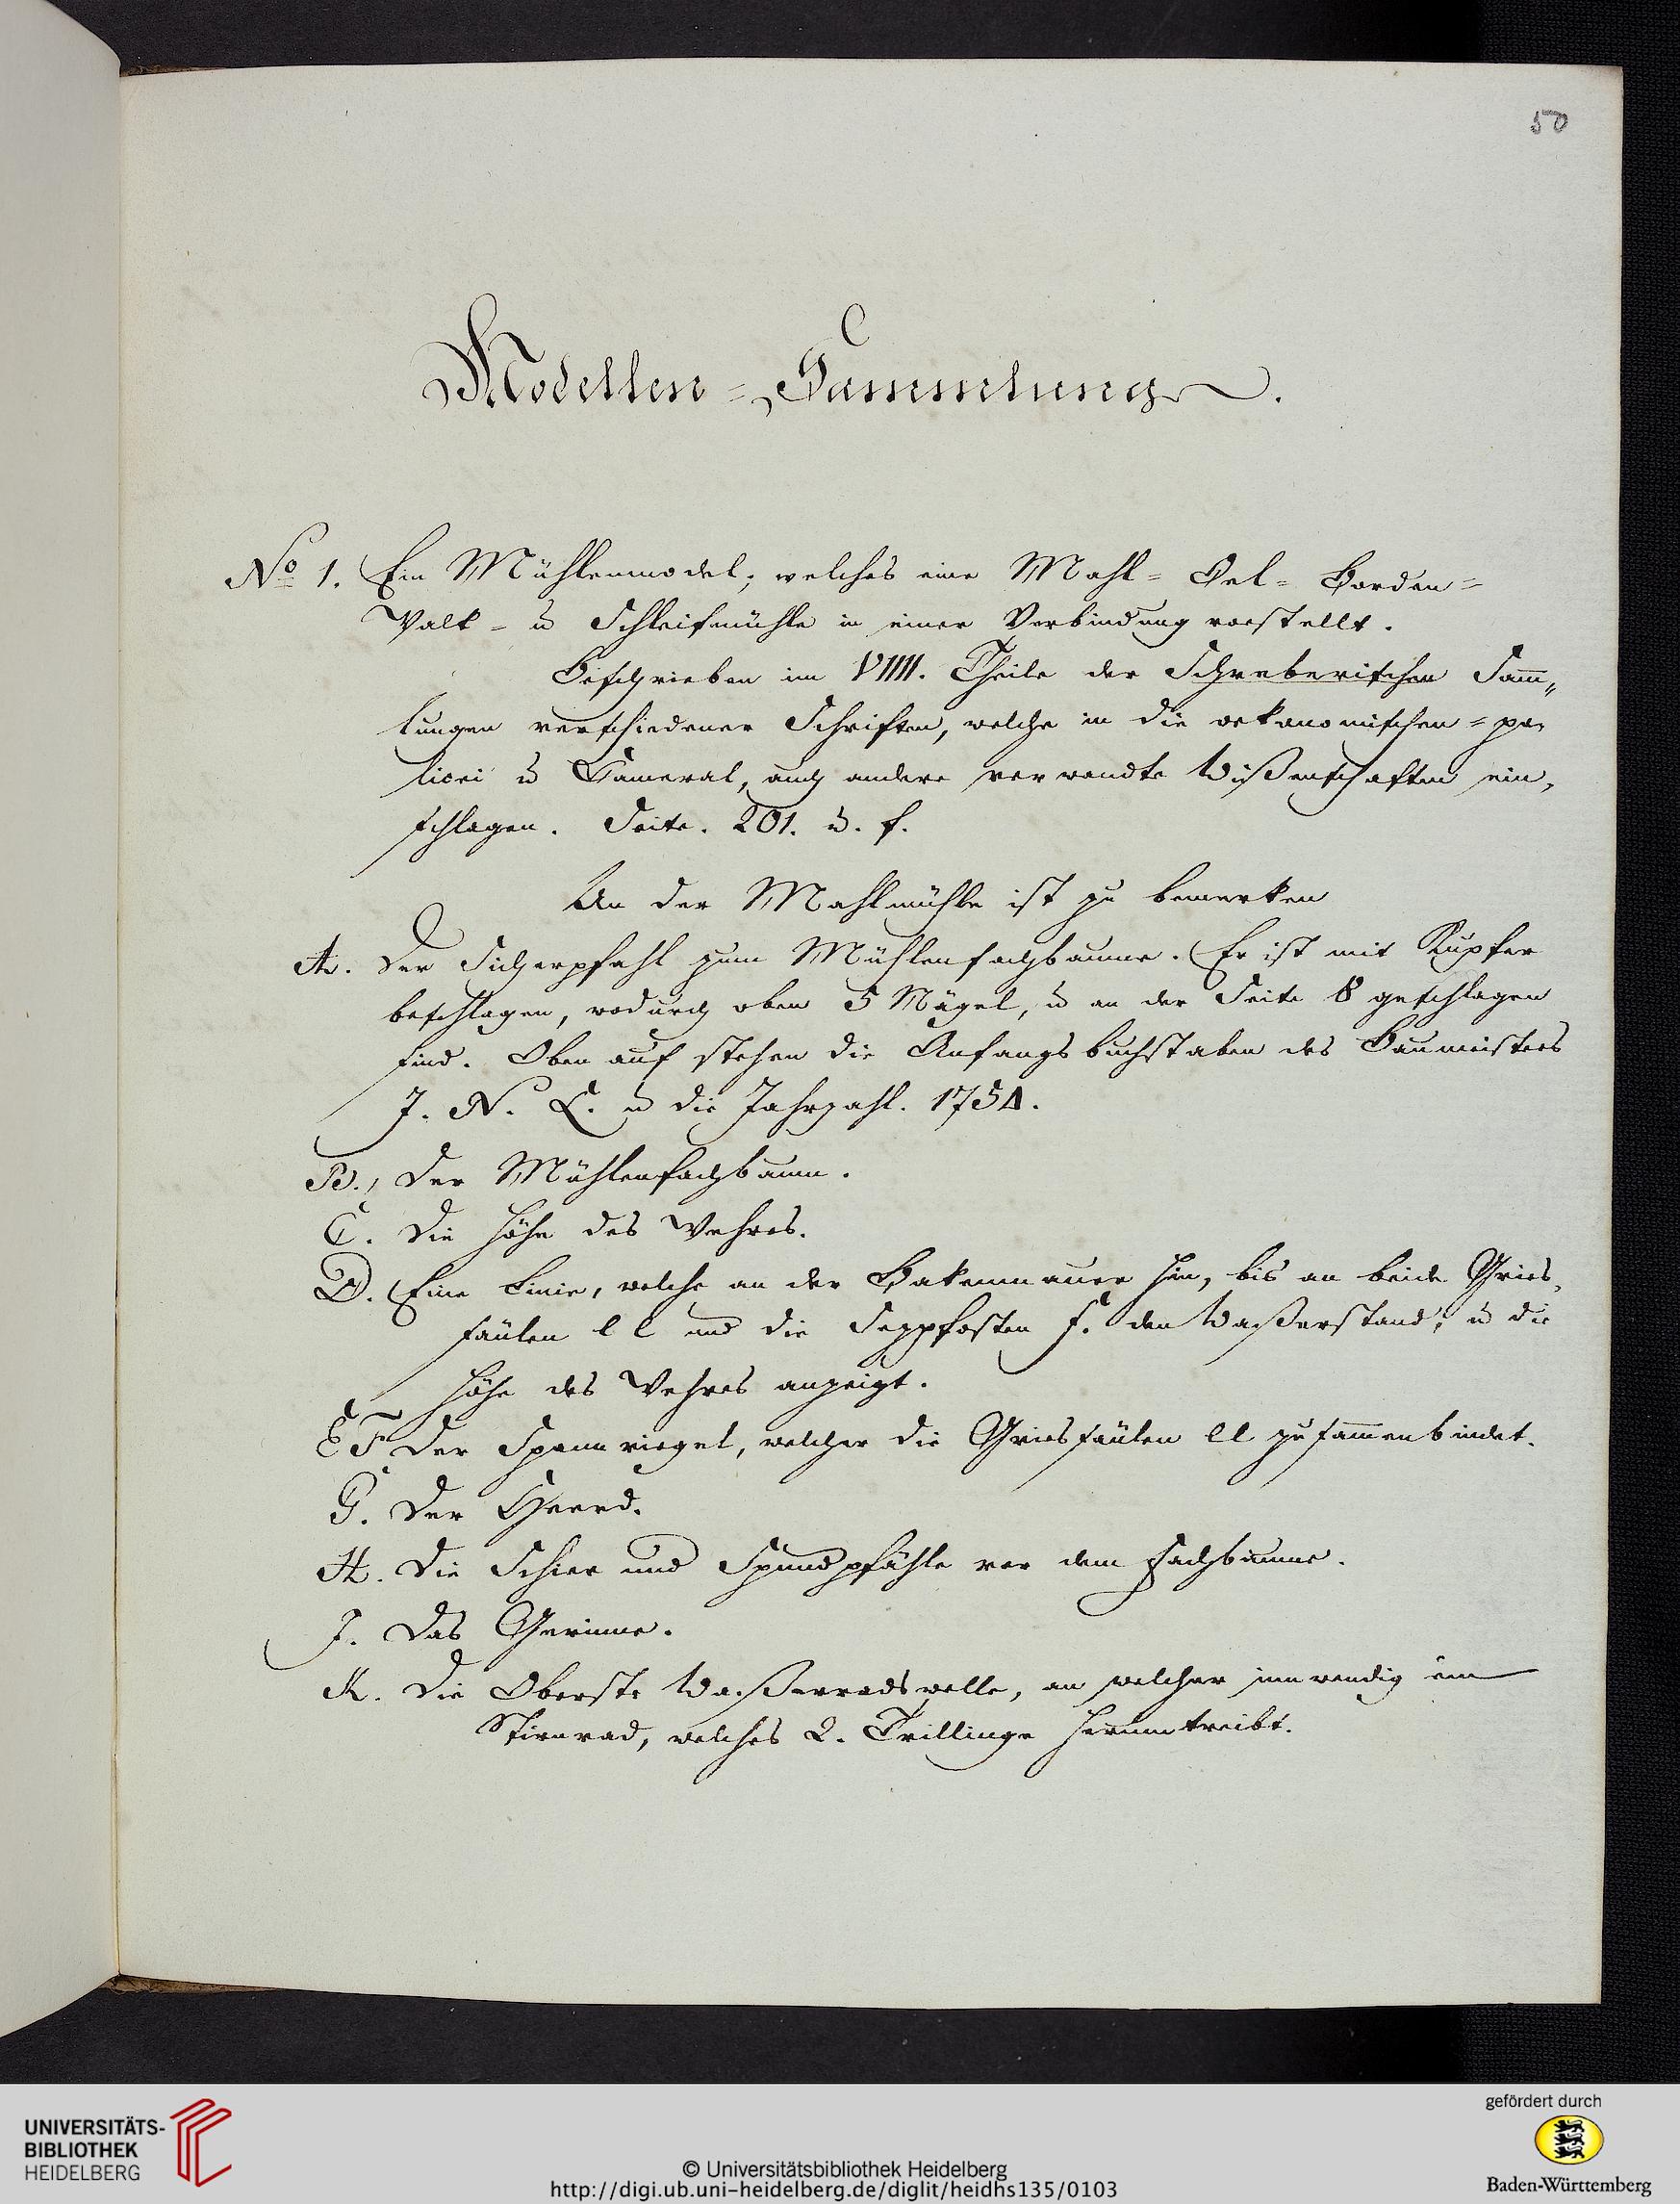 50
Modellen=Sammlung.
No 1. Ein Mühlenmodel; welches eine Mahl= Oel= Borden=
Walk= u Schleifmühle in einer Verbindung vorstellt.
Beschrieben im VIIII. Theile der Schreberischen Sam̅„
lungen verschiedener Schriften, welche in die oekonomischen=po„
licei u Cameral, auch andere verwandte Wißenschaften ein„
schlagen. Seite. 201. u. f.
An der Mahlmühle ist zu bemerken
A. Der Sicherpfahl zum Mühlenfachbaume. Er ist mit Kupfer
beschlagen, wodurch oben 5 Nägel, u an der Seite 8 geschlagen
sind. Oben auf stehen die Anfangsbuchstaben des Baumeisters
J. N. L. u die Jahrzahl. 1754.
B., Der Mühlenfachbaum.
C. Die Höhe des Wehres.
D. Eine Linie, welche an der Bakenmauer hin, bis an beide Gries„
säulen l l und die Sezpfosten f. den Waßerstand, u die
Höhe des Wehres anzeigt.
E F Der Spannriegel, welcher die Griessäulen ll zusam̅enbindet.
G. Der Heerd.
H. Die Schier und Spundpfähle vor dem Fachbaume.
J. Das Gerinne.
K. Die Oberste Waßerradswelle, an welcher innwendig ein
Stirnrad, welches 2. Trillinge herumtreibt.
UNIVERSITÄTS-
BIBLIOTHEK
HEIDELBERG
© Universitätsbibliothek Heidelberg
http://digi.ub.uni-heidelberg.de/diglit/heidhs135/0103
gefördert durch
Baden-Württemberg